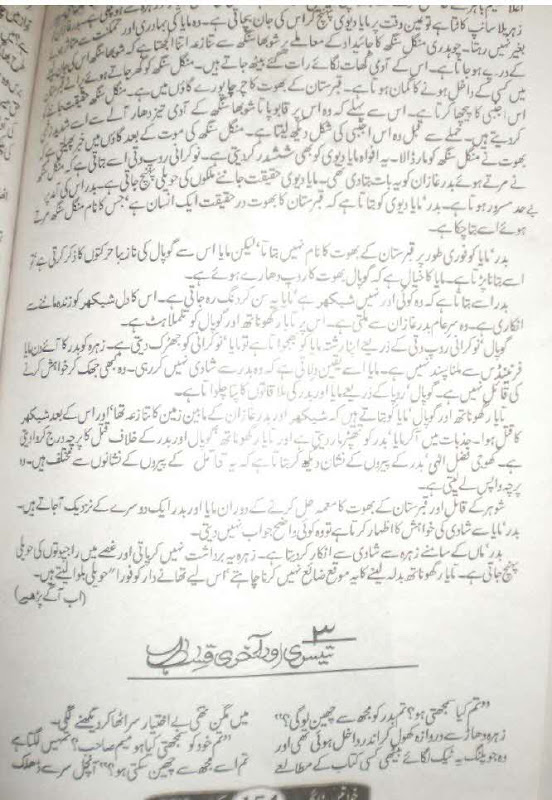 زہریلا سانپ کاٹتا ہے تو عین وقت پر مایا دیوی پہنچ کر اس کی جان بچاتی ہے۔ وہ مایا کی بہادری اور
بغیر نہیں رہتا۔ چوہدری منگل سنگھ کا جائیداد کے معاملے پر شوبھا سنگھ سے تنازعہ اتنا الجھتا ہے کہ شوبھا سنگھ اس
کے درپے ہو جاتا ہے۔ اس کے آدمی گھات لگائے رات گئے بیٹھ جاتے ہیں۔ منگل سنگھ کو گھر جاتے ہوئے
میں کسی کے داخل ہونے کا گمان ہوتا ہے۔ قبرستان کے بھوت کا چرچا پورے گاؤں میں ہے۔ منگل سنگھ حقیقت
اس اجنبی کا پیچھا کرتا ہے۔ اس سے پہلے کہ وہ اس پر قابو پاتا شوبھا سنگھ کے آدمی تیز دھار آلے سے اسے
کر دیتے ہیں۔ حملے سے قبل وہ اس اجنبی کی شکل دیکھ لیتا ہے۔ منگل سنگھ کی موت کے بعد گاؤں میں خبر پھیلتی ہے کہ
بھوت نے منگل سنگھ کو مار ڈالا۔ یہ افواہ مایا دیوی کو بھی ششدر کر دیتی ہے۔ نوکرانی روپ وتی اسے بتاتی ہے کہ منگل سنگھ
نے مرتے ہوئے بدر غازان کو یہ بات بتا دی تھی۔ مایا دیوی حقیقت جاننے ملکوں کی حویلی پہنچ جاتی ہے۔ بدر اس کی آمد پر
بے حد مسرور ہوتا ہے۔ بدر' مایا دیوی کو بتاتا ہے کہ قبرستان کا بھوت درحقیقت ایک انسان ہے' جس کا نام منگل سنگھ مرتے
ہوئے اسے بتا چکا ہے۔
بدر' مایا کو فوری طور پر قبرستان کے بھوت کا نام نہیں بتاتا' لیکن مایا اس سے گوپال کی نازیبا حرکتوں کا ذکر کرتی ہے' تو
اسے بتانا پڑتا ہے۔ مایا کا خیال ہے کہ گوپال بھوت کا روپ دھارے ہوئے ہے۔
بدر اسے بتاتا ہے کہ وہ کوئی اور نہیں شیکھر ہے' مایا یہ سن کر دنگ رہ جاتی ہے۔ اس کا دل شیکھر کو زندہ ماننے سے
انکاری ہے۔ وہ سرعام بدر غازان سے ملتی ہے۔ اس پر تایا رگھوناتھ اور گوپال کو تلملاہٹ ہے۔
گوپال' نوکرانی روپ وتی کے ذریعے اپنا رشتہ مایا کو بھجواتا ہے تو مایا' نوکرانی کو جھڑک دیتی ہے۔ زہرہ کو بدر کا آئے دن مایا
فرنینڈس سے ملنا پسند نہیں ہے۔ مایا اسے یقین دلاتی ہے کہ وہ بدر سے شادی نہیں کر رہی۔ وہ کبھی جھک کر خواہش کرنے
کی قائل نہیں ہے۔ گوپال' روپا کے ذریعے مایا اور بدر کی ملاقاتوں کا پتا چلواتا ہے۔
تایا رگھوناتھ اور گوپال' مایا کو بتاتے ہیں کہ شیکھر اور بدر غازان کے مابین زمین کا تنازعہ تھا' اور اس کے بعد شیکھر
کا قتل ہوا۔ جذبات میں آ کر مایا' بدر کو تھپڑ مار دیتی ہے اور تایا رگھوناتھ' گوپال اور بدر کے خلاف قتل کا پرچہ درج کروا دیتی
ہے۔ کھوجی فضل الٰہی' بدر کے پیروں کے نشان دیکھ کر بتاتا ہے کہ یہ قاتل کے پیروں کے نشانوں سے مختلف ہیں۔ وہ
پرچہ واپس لے لیتی ہے۔
شوہر کے قاتل اور قبرستان کے بھوت کا معمہ حل کرنے کے دوران مایا اور بدر ایک دوسرے کے نزدیک آ جاتے ہیں۔
بدر' مایا سے شادی کی خواہش کا اظہار کرتا ہے تو وہ کوئی واضح جواب نہیں دیتی۔
بدر' ماں کے سامنے زہرہ سے شادی سے انکار کر دیتا ہے۔ زہرہ یہ برداشت نہیں کر پاتی اور غصے میں راجپوتوں کی حویلی
پہنچ جاتی ہے۔ تایا رگھوناتھ بدلہ لینے کا یہ موقع ضائع نہیں کرنا چاہتے' اس لیے تھانے دار کو فوراً حویلی بلوا لیتے ہیں۔
(اب آگے پڑھیے)
۳
تیسری اور آخری قسط
"تم کیا سمجھتی ہو؟ تم بدر کو مجھ سے چھین لو گی؟"
زہرہ دھاڑ سے دروازہ کھول کر اندر داخل ہوئی تھی اور
وہ جو پلنگ پہ ٹیک لگائے بیٹھی کسی کتاب کے مطالعے
میں مگن تھی بے اختیار سر اٹھا کر دیکھنے لگی۔
"تم خود کو سمجھتی کیا ہو میم صاحب؟ تمہیں لگتا ہے
تم اسے مجھ سے چھین سکتی ہو؟" آنچل سر سے ڈھلک